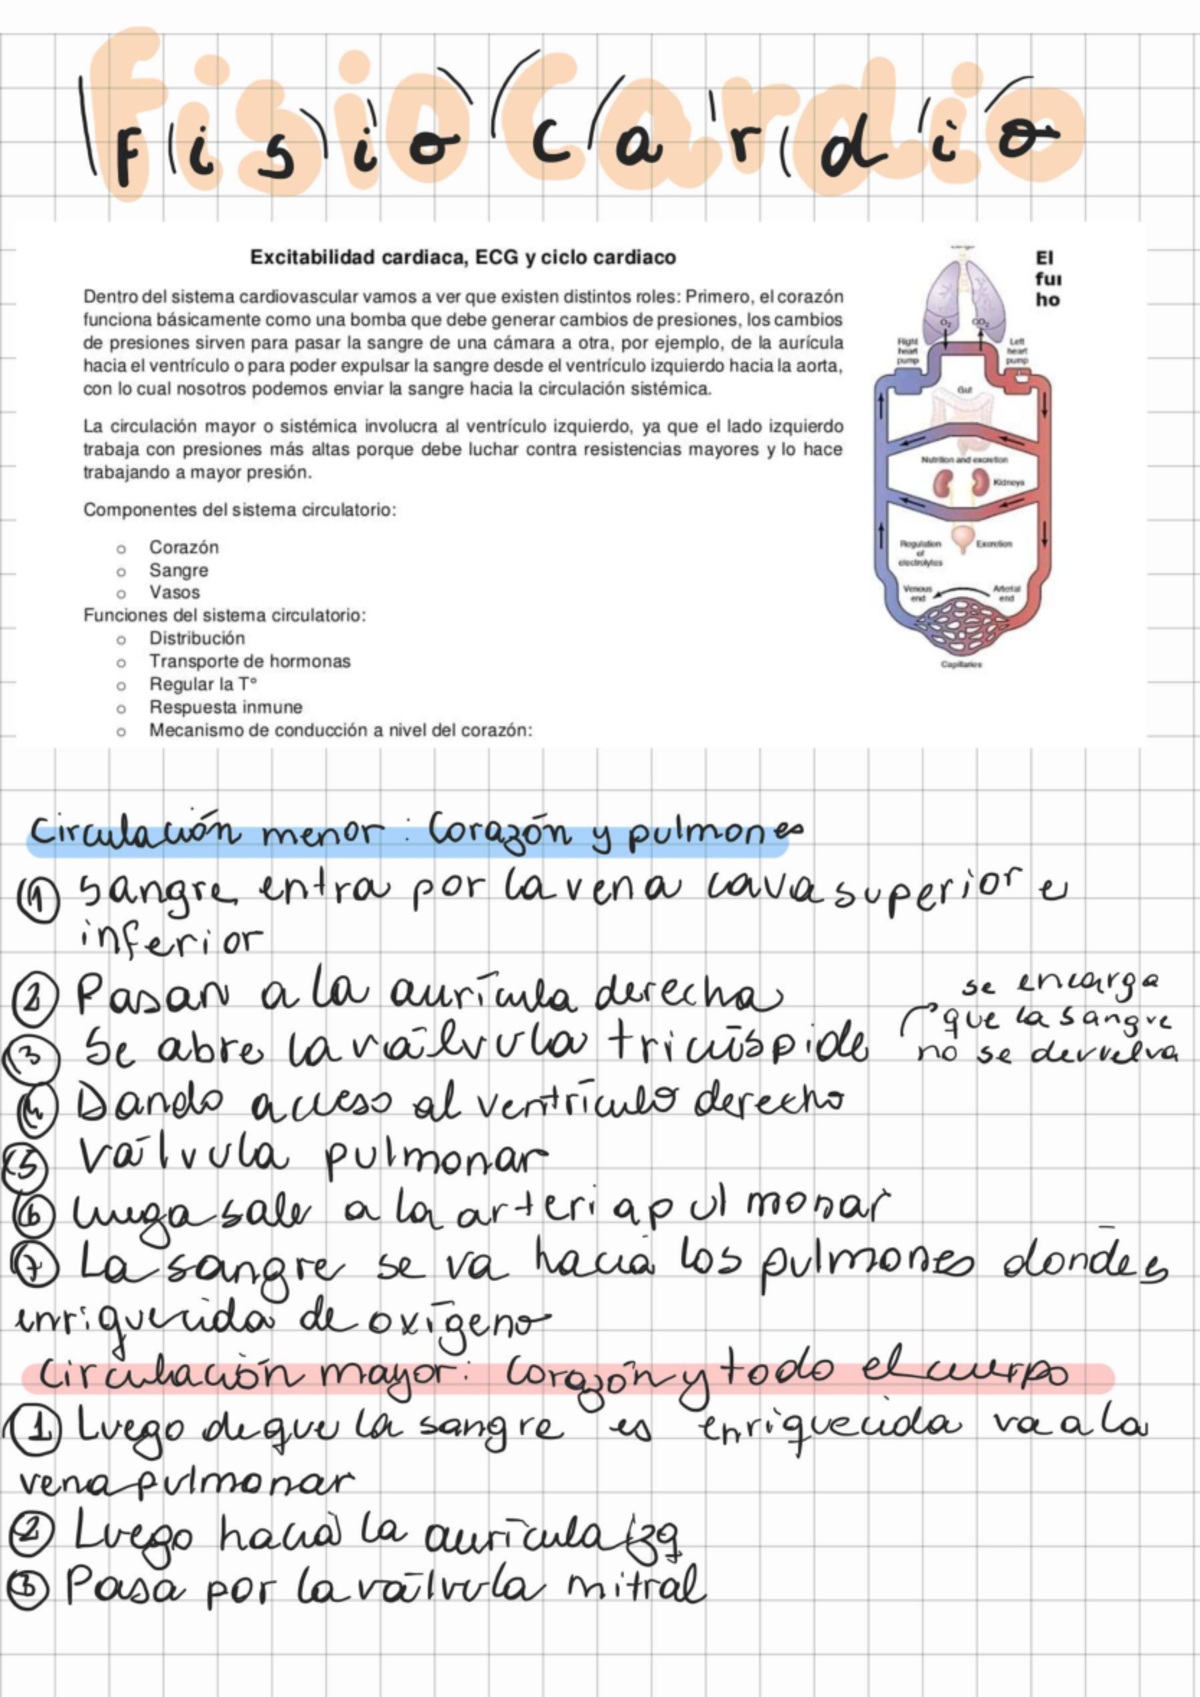 Fisio Cardio
Excitabilidad cardiaca, ECG y ciclo cardiaco
Dentro del sistema cardiovascular vamos a ver que existen distintos roles: Primero, el corazón
funciona básicamente como una bomba que debe generar cambios de presiones, los cambios
de presiones sirven para pasar la sangre de una cámara a otra, por ejemplo, de la aurícula
hacia el ventrículo o para poder expulsar la sangre desde el ventrículo izquierdo hacia la aorta,
con lo cual nosotros podemos enviar la sangre hacia la circulación sistémica.
La circulación mayor o sistémica involucra al ventrículo izquierdo, ya que el lado izquierdo
trabaja con presiones más altas porque debe luchar contra resistencias mayores y lo hace
trabajando a mayor presión.
Componentes del sistema circulatorio:
o Corazón
o Sangre
o Vasos
Funciones del sistema circulatorio:
o Distribución
o Transporte de hormonas
o Regular la T°
o Respuesta inmune
o Mecanismo de conducción a nivel del corazón:
El
fui
ho
O2 CO2
Right
heart
pump
Left
heart
pump
Gut
Nutrition and excretion
Kidneys
Regulation
of
electrolytes
Excretion
Venous
end
Arterial
end
Capillaries
Circulación menor: Corazón y pulmones
1 Sangre entra por la vena cava superior e
inferior
2 Pasan a la aurícula derecha
3 Se abre la válvula tricúspide
se encarga
que la sangre
no se devuelva
4 Dando acceso al ventrículo derecho
5 Válvula pulmonar
6 Luega sale a la arteria pulmonar
7 La sangre se va hacia los pulmones donde es
enriquecida de oxígeno
Circulación mayor: Corazón y todo el cuerpo
1 Luego de que la sangre es enriquecida va a la
vena pulmonar
2 Luego hacia la aurícula izq.
3 Pasa por la válvula mitral